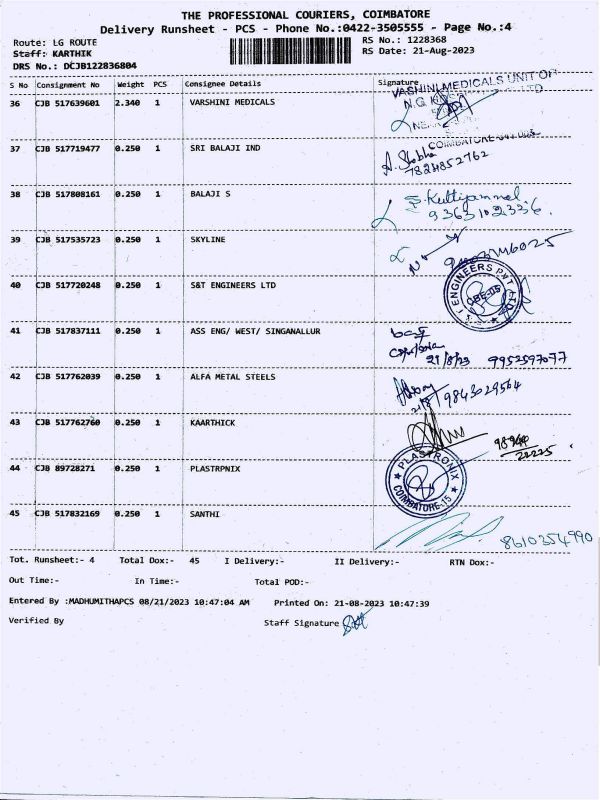 THE PROFESSIONAL COURIERS, COIMBATORE
Delivery Runsheet - PCS - Phone No.:0422-3505555 - Page No.:4
Route: LG ROUTE
RS No.: 1228368
Staff: KARTHIK
RS Date: 21-Aug-2023
DRS No.: DCJB122836804
S No Consignment No Weight PCS Consignee Details Signature
VARSHINI MEDICALS UNIT OF
36 CJB 517639601 2.340 1 VARSHINI MEDICALS
COIMBATORE
37 CJB 517719477 0.250 1 SRI BALAJI IND
A. Shobha
7824852762
38 CJB 517808161 0.250 1 BALAJI S
9363102336.
39 CJB 517535723 0.250 1 SKYLINE
40 CJB 517720248 0.250 1 S&T ENGINEERS LTD
ENGINEERS PVT LTD
41 CJB 517837111 0.250 1 ASS ENG/ WEST/ SINGANALLUR
21/8/23 9952597077
42 CJB 517762039 0.250 1 ALFA METAL STEELS
21/8 9843029564
43 CJB 517762760 0.250 1 KAARTHICK
44 CJB 89728271 0.250 1 PLASTRPNIX
PLASTRONIX
COIMBATORE-15
45 CJB 517832169 0.250 1 SANTHI
8610354990
Tot. Runsheet:- 4 Total Dox:- 45 I Delivery:- II Delivery:- RTN Dox:-
Out Time:- In Time:- Total POD:-
Entered By :MADHUMITHAPCS 08/21/2023 10:47:04 AM Printed On: 21-08-2023 10:47:39
Verified By Staff Signature